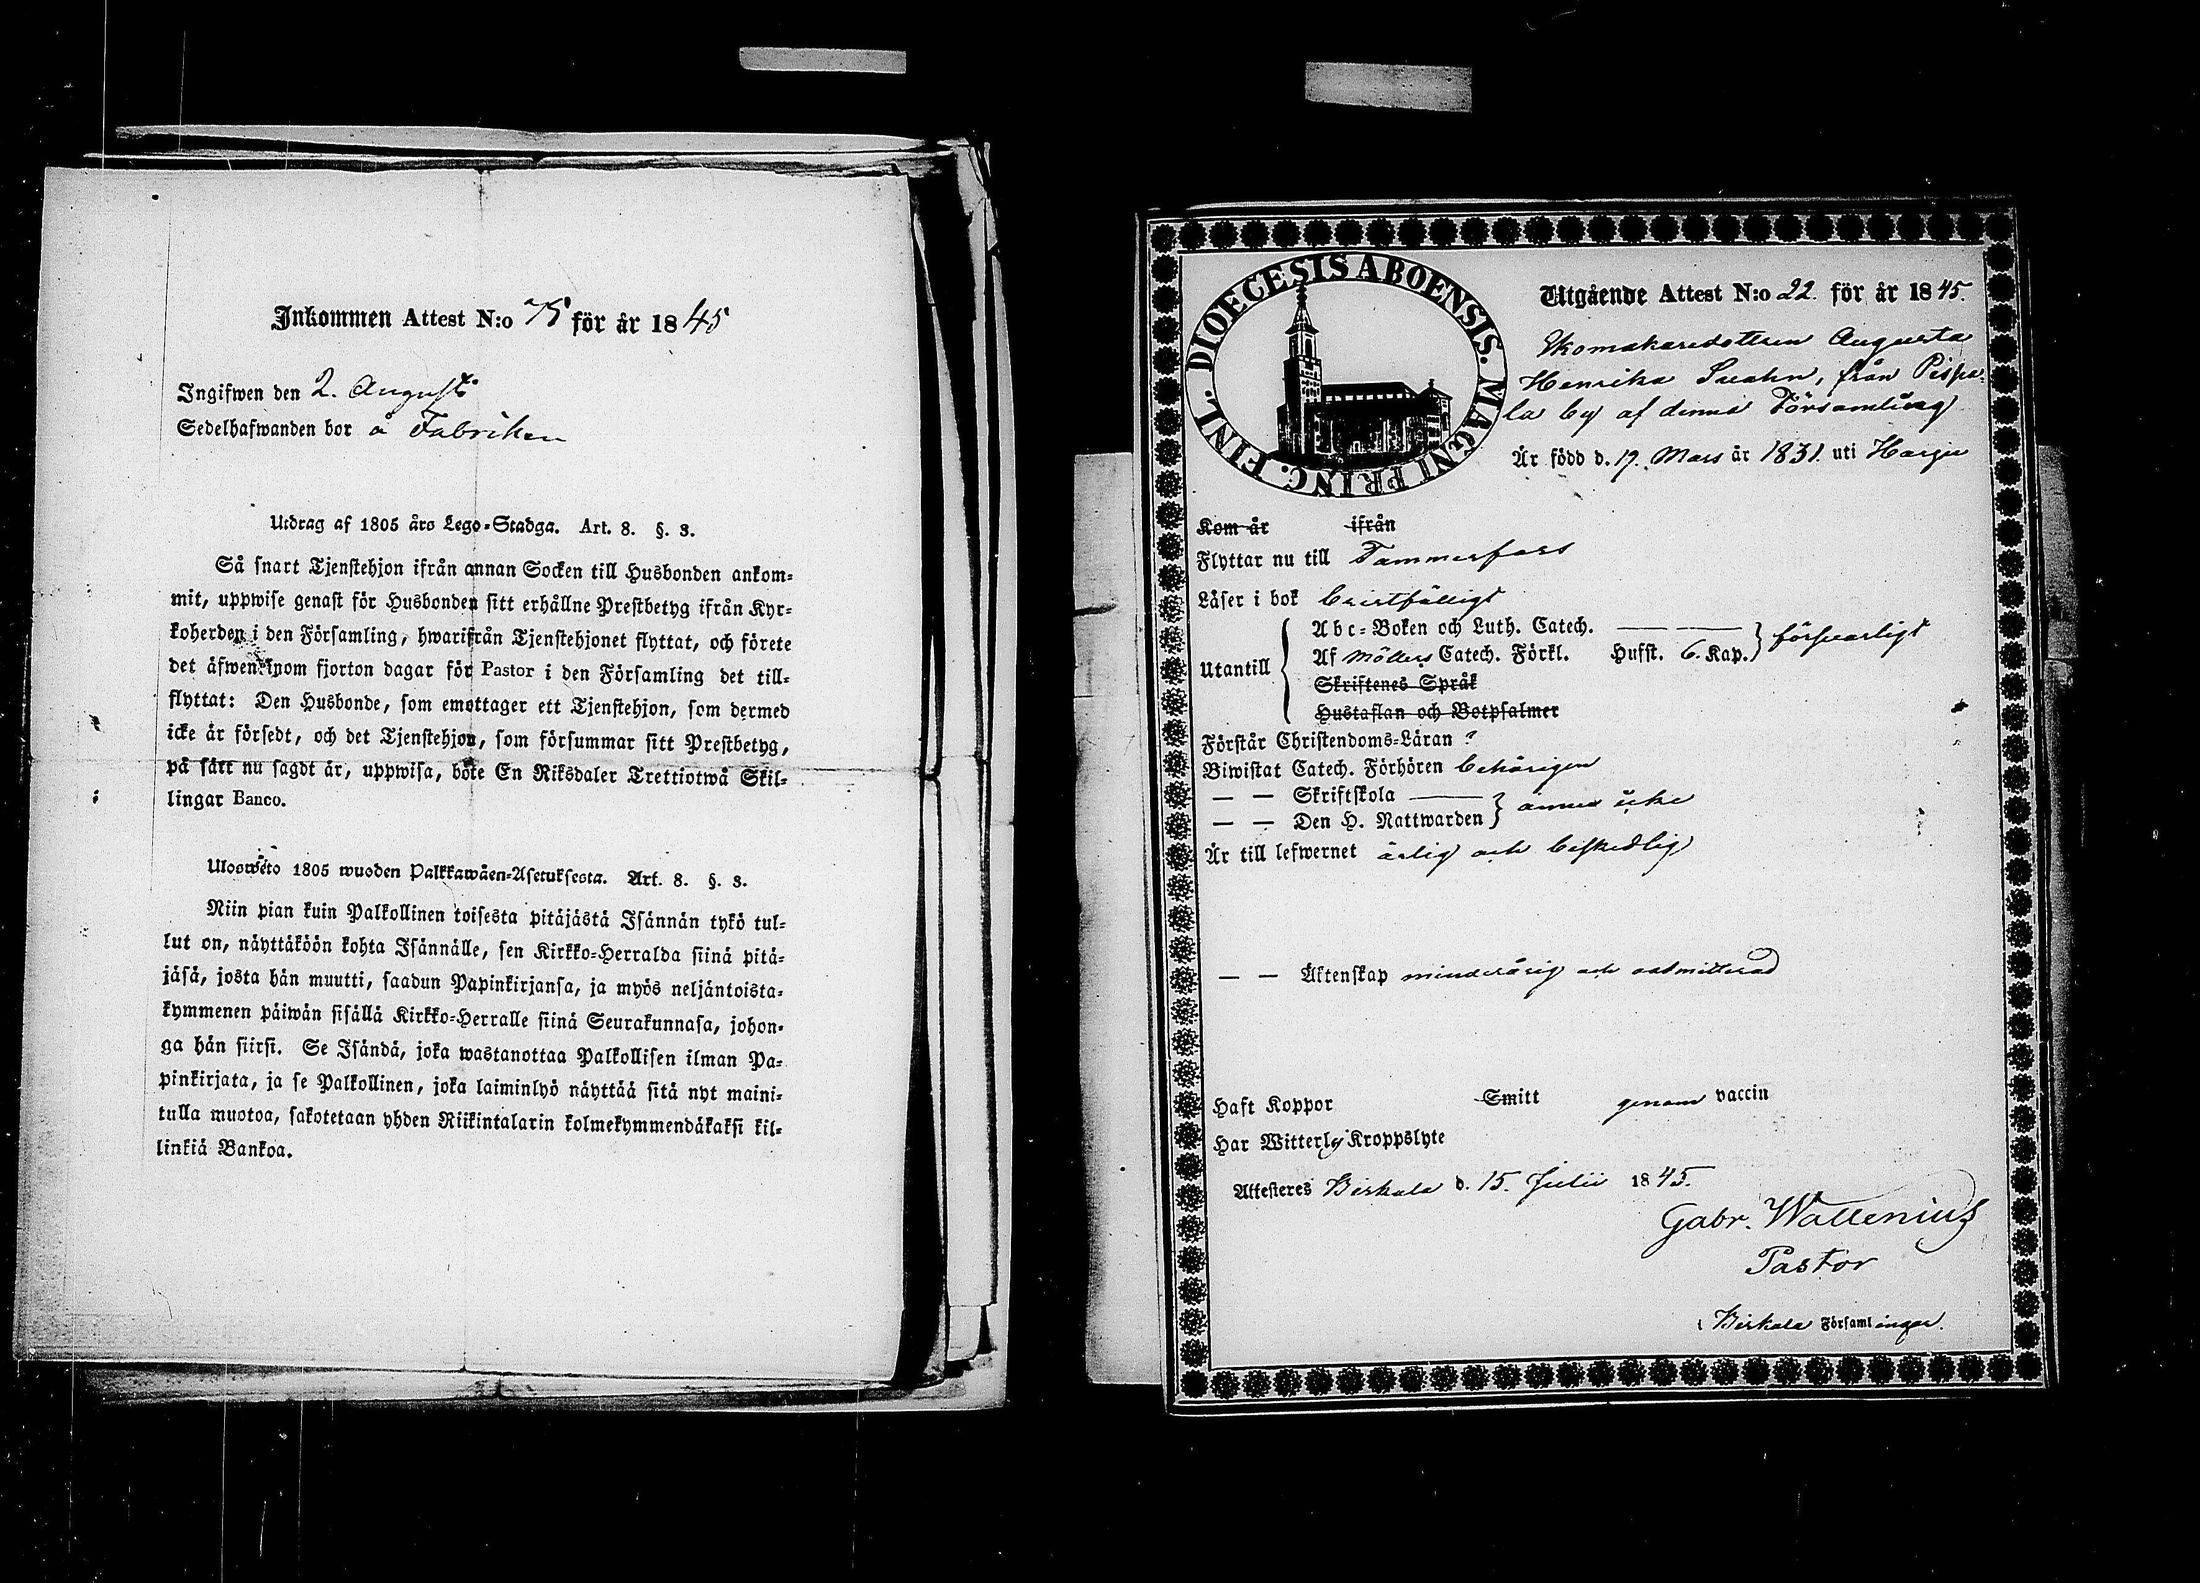 Inkommen Attest N:o 75 för år 1845
Ingifwen den 2. Augusti
Sedelhafwanden bor å Fabriken
Utdrag af 1805 års Lego-Stadga. Art. 8. §. 3.
Så snart Tjenstehjon ifrån annan Socken till Husbonden ankom-
mit, uppwise genast för Husbonden sitt erhållne Prestbetyg ifrån Kyr-
koherden i den Församling, hwarifrån Tjenstehjonet flyttat, och förete
det äfwen inom fjorton dagar för Pastor i den Församling det till-
flyttat: Den Husbonde, som emottager ett Tjenstehjon, som dermed
icke är försedt, och det Tjenstehjon, som försummar sitt Prestbetyg,
på sätt nu sagdt är, uppwisa, böte En Riksdaler Trettiotwå Skil-
lingar Banco.
Uloswèto 1805 wuoden Palkkawäen-Asetuksesta. Art. 8. §. 3.
Niin pian kuin Palkollinen toisesta pitäjästä Isännän tykö tul-
lut on, näyttäköön kohta Isännälle, sen Kirkko-Herralda siinä pitä-
jäsä, josta hän muutti, saadun Papinkirjansa, ja myös neljäntoista-
kymmenen päiwän sisällä Kirkko-Herralle siinä Seurakunnasa, johon-
ga hän siirsi. Se Isändä, joka wastanottaa Palkollisen ilman Pa-
pinkirjata, ja se Palkollinen, joka laiminlyö näyttää sitä nyt maini-
tulla muotoa, sakotetaan yhden Riikintalarin kolmekymmendäkaksi kil-
linkiä Bankoa.
DIOECESIS ABOENSIS. MAGNI PRINC. FINL.
Utgående Attest N:o 22. för år 1845.
Skomakaredottren Augusta
Henrika Svahn, från Pispa-
la by af denna Församling
Är född d. 19. Mars år 1831. uti Harju
Kom år ifrån
Flyttar nu till Tammerfors
Läser i bok bristfälligt
Utantill { Abc-Boken och Luth. Catech. — —
Af Möllers Catech. Förkl. Hufst. 6. Kap. } försvarligt
Skriftenes Språk
Hustaflan och Botpsalmer
Förstår Christendoms-Läran ?
Biwistat Catech. Förhören behörigen
— — Skriftskola —
— — Den H. Nattwarden } ännu icke
Är till lefwernet ärlig och beskedlig
— — Äktenskap minderårig och oadmitterad
Haft Koppor Smitt genom vaccin
Har Witterlig Kroppslyte
Attesteres Birkala d. 15. Julii 1845.
Gabr. Wallenius
Pastor
i Birkala Församlingar.